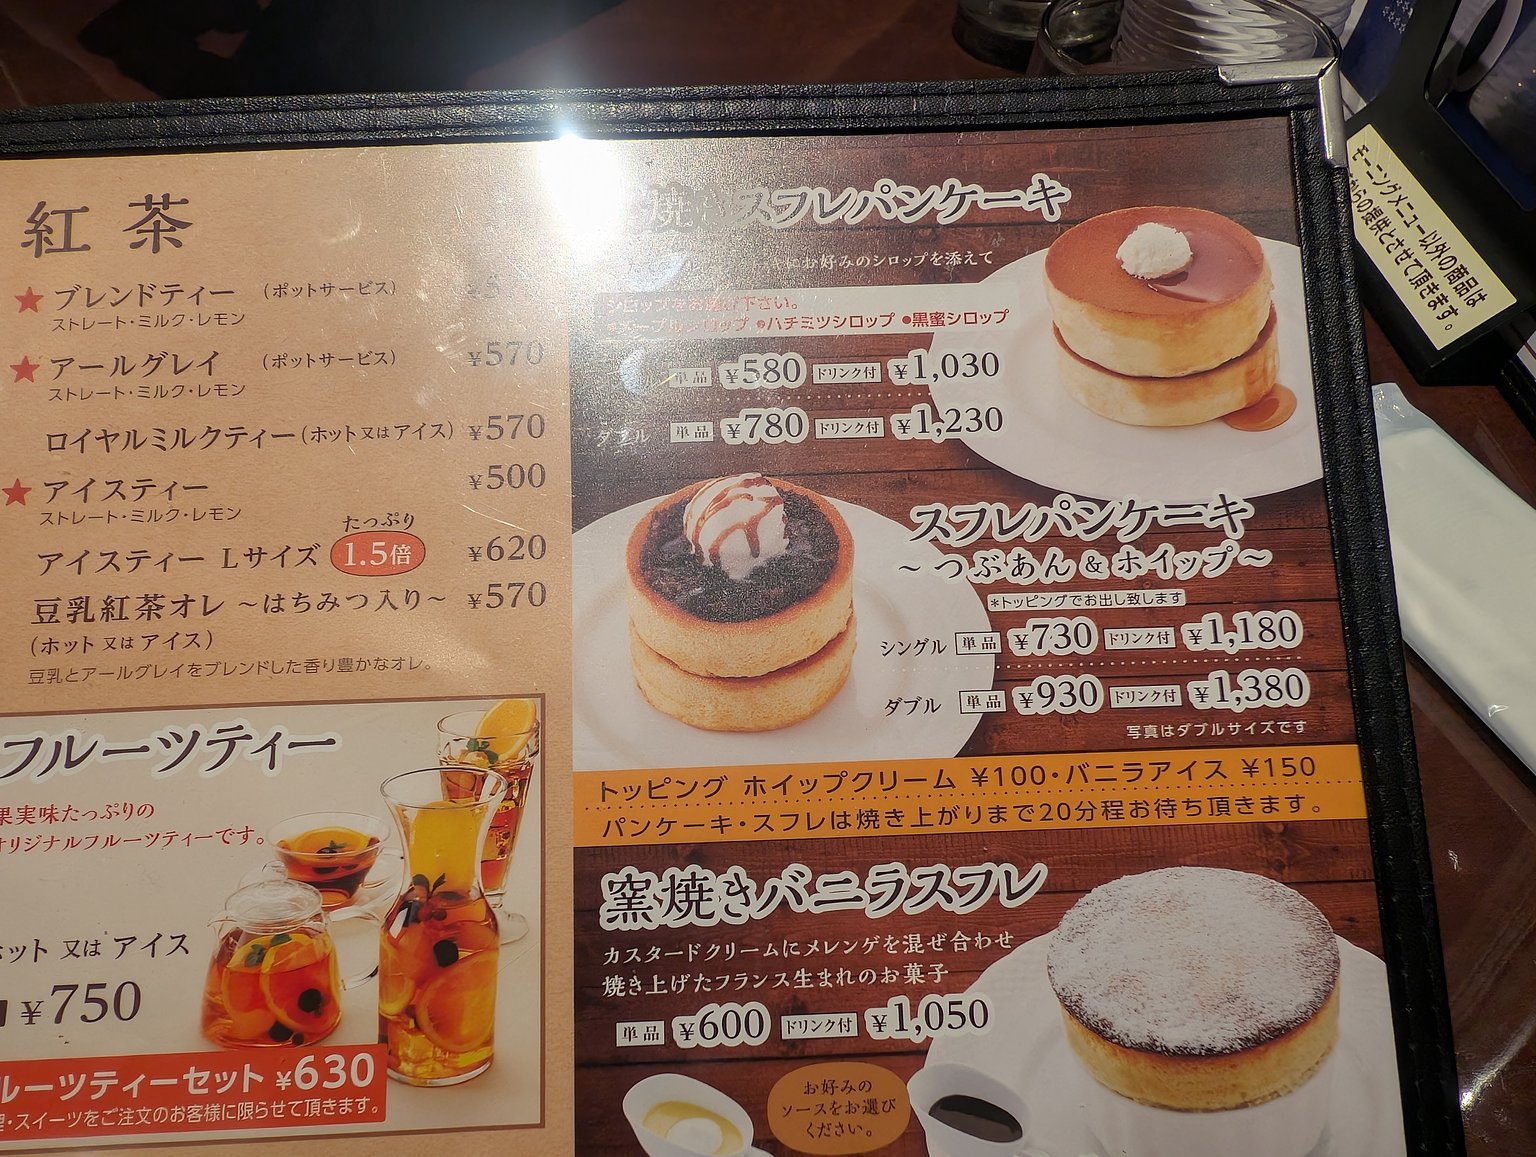 紅茶
★ ブレンドティー (ポットサービス)
ストレート・ミルク・レモン
★ アールグレイ (ポットサービス) ¥570
ストレート・ミルク・レモン
ロイヤルミルクティー(ホット又はアイス) ¥570
★ アイスティー ¥500
ストレート・ミルク・レモン
たっぷり
アイスティー Lサイズ 1.5倍 ¥620
豆乳紅茶オレ ～はちみつ入り～ ¥570
(ホット又はアイス)
豆乳とアールグレイをブレンドした香り豊かなオレ。
フルーツティー
果実味たっぷりの
オリジナルフルーツティーです。
ホット 又は アイス
¥750
ルーツティーセット ¥630
・スイーツをご注文のお客様に限らせて頂きます。
焼きスフレパンケーキ
にお好みのシロップを添えて
シロップをお選び下さい。
●メープルシロップ ●ハチミツシロップ ●黒蜜シロップ
単品 ¥580 ドリンク付 ¥1,030
ダブル 単品 ¥780 ドリンク付 ¥1,230
スフレパンケーキ
～つぶあん&ホイップ～
*トッピングでお出し致します
シングル 単品 ¥730 ドリンク付 ¥1,180
ダブル 単品 ¥930 ドリンク付 ¥1,380
写真はダブルサイズです
トッピング ホイップクリーム ¥100・バニラアイス ¥150
パンケーキ・スフレは焼き上がりまで20分程お待ち頂きます。
窯焼きバニラスフレ
カスタードクリームにメレンゲを混ぜ合わせ
焼き上げたフランス生まれのお菓子
単品 ¥600 ドリンク付 ¥1,050
お好みの
ソースをお選び
ください。
モーニングメニュー以外の商品は
とさせて頂きます。